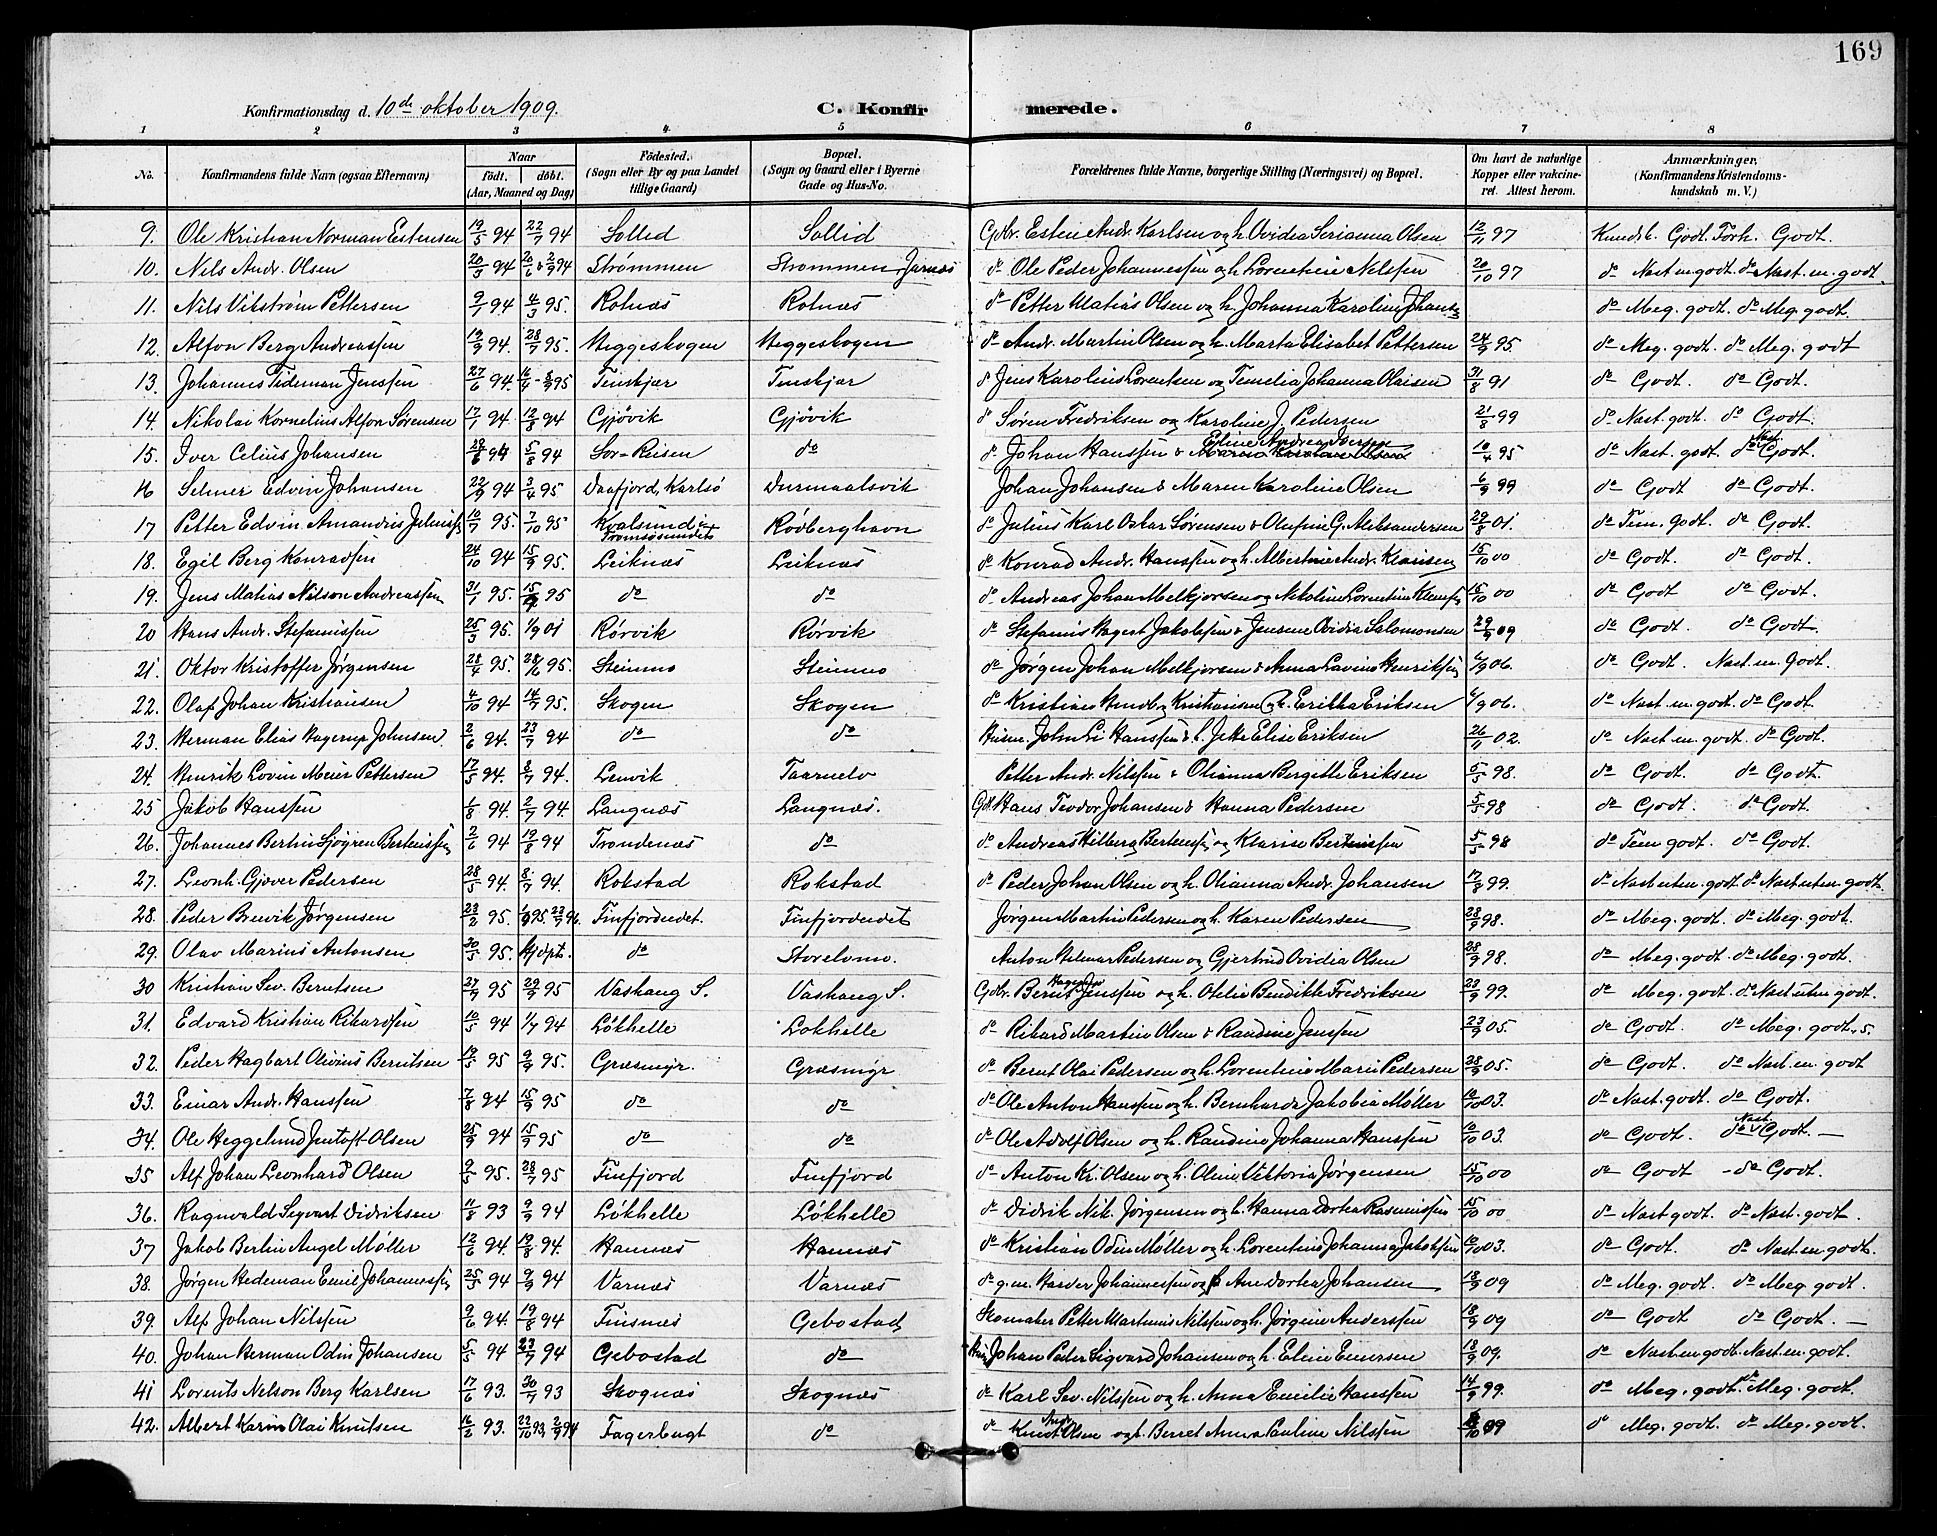 169
Konfirmationsdag d. 10de oktober 1909.
C. Konfirmerede.
1 2 3 4 5 6 7 8
No. Konfirmandens fulde Navn (ogsaa Efternavn) Naar födt, döbt. (Aar, Maaned og Dag) Födested. (Sogn eller By og paa Landet tillige Gaard) Bopæl. (Sogn og Gaard eller i Byerne Gade og Hus-No. Forældrenes fulde Navne, borgerlige Stilling (Næringsvei) og Bopæl. Om havt de naturlige Kopper eller vakcineret. Attest herom. Anmærkninger. (Konfirmandens Kristendomskundskab m. V.)
9. Ole Kristian Norman Estensen 19/5 94 22/7 94 Sollid Sollid Gbr. Esten Andr. Karlsen og h. Ovidia Serianna Olsen 12/11 97 Kundsk. Godt. Forh. Godt.
10. Nils Andr. Olsen 20/3 94 2/9 94 Strømmen Strømmen Jarnæs do Ole Peder Johannessen og h. Lorentine Nilsen 20/10 97 do Nast. m. godt. do Nast. m. godt
11. Nils Vikstrøm Pettersen 9/1 94 4/3 95. Rotnæs Rotnæs do Petter Matias Olsen og h. Johanna Karoline do Meg. godt. do Meg. godt.
12. Alfon Berg Andreassen 13/9 94. 28/7 95. Heggeskogen Heggeskogen do Andr. Martin Olsen og h. Marta Elisabet Pettersen 24/9 95. do Meg. godt. do Meg. godt
13. Johannes Tideman Jenssen 27/6 94. 95 Finskjær Finskjær do Jens Karolius Lorentsen og Temelia Johanna Olaisen 31/8 91 do Godt. do Godt.
14. Nikolai Kornelius Alfon Sørensen 17/1 94. 12/8 94 Gjøvik Gjøvik do Søren Fredriksen og Karoline J. Pedersen 21/8 99 do Nast. godt. do Godt.
15. Iver Celius Johansen 6 94 5/8 94 Sør-Reisen do do Johan Hanssen & Eline Andrea Iversen 10/4 95 do Nast. godt. do Nast. Godt.
16 Selmer Edvin Johansen 22/9 94 3/4 95. Daafjord, Karlsö Durmaalsvik Johan Johansen & Maren Karoline Olsen 6/9 99 do Godt do Godt.
17 Petter Edvin Amandius 10/7 95. 7/10 95 Kvalsund i Tromsøsundet Rödberghavn do Julius Karl Oskar Sørensen & Olufine G. Aleksandersen 29/8 01. do Tem. godt. do Godt.
18. Egil Berg Konradsen 24/10 94 15/9 95. Leiknæs Leiknæs do Konrad Andr. Hanssen og h. Albertine Andr. Klausen 15/10 00 do Godt. do Godt.
19. Jens Matias Nilson Andreassen 31/1 95. 15/9 95 do do do Andreas Johan Melkjorsen og Nikoline Lorentine 16/10 00 do Godt do Godt.
20 Hans Andr. Stefanussen 25/3 95. 1/9 01 Rørvik Rørvik do Stefanus Hagert Jakobsen & Jensine Ovidia Salomonsen 29/9 09 do Godt. do Godt.
21. Oktov Kristoffer Jørgensen 28/4 95. 28/6 95. Steinmo Steinmo do Jørgen Johan Melkjorsen & Anna Lavina Henriksen 4/9 06. do Godt. Nast. m. Godt.
22. Olaf Johan Kristiansen 4/10 94 14/7 95. Skogen Skogen do Kristian Kristiansen h. Erikka Eriksen 4/9 06. do Nast. m. godt. do Godt.
23. Herman Elias Hagerup Johnsen 2/6 94. 23/7 94 do do Husm. John Hanssen & h. Jette Elise Eriksen 26/11 02. do Nast. m. godt. do Godt.
24. Henrik Lovin Meier Pettersen 17/5 94. 8/7 94. Lenvik Taarnelv Petter Andr. Nilssen & Olianna Bergitte Eriksen 5/5 98. do Godt. do Godt.
25 Jakob Hanssen 1/8 94. 2/7 94. Langnæs Langnæs. Gbr. Hans Teodor Johansen & Hanna Pedersen 5/5 98 do Godt. do Godt.
26. Johannes Bertin Sjøgren Bertinsen 2/6 94 19/8 94 Trondenæs do do Andreas Hilberg Bertinsen og Klarine Bertinsen 5/5 98 do Tem godt. do Godt.
27. Leonh. Gjøver Pedersen 28/5 94. 8/7 94. Rokstad Rokstad do Peder Johan Olsen og h. Olianna Andr. Johansen 17/8 99. do Nast uten. godt do Nast uten godt.
28. Peder Brevik Jørgensen 23/2 95. 95 22/9 96. Finfjordeidet. Finfjordeidet Jørgen Martin Pedersen og h. Karen Pedersen 28/9 98. do Meg. godt. do Meg. godt.
29. Olav Marius Antonsen 30/5 95. Hjdpt. do Storelvmo. Anton Hilmar Pedersen og Gjertrud Ovidia Olsen 28/9 98. do Meg. godt. do Meg. godt.
30 Kristian Sev. Berntsen 27/7 95 29/9 95 Vashaug S. Vashaug S. Gbr. Bernt Jenssen og h. Otelie Bendikte Fredriksen 23/9 99. do Meg. godt. do Nast uten godt.
31. Edvard Kristian Rikardsen 10/5 94 1/7 94 Lökhelle Lokhelle do Rikard Martin Olsen & Randine Jenssen 23/9 05. do Godt. do Meg. godt.
32. Peder Hagbart Olivius Berntsen 19/5 95 9/9 95. Græsmyr. Græsmyr do Bernt Olai Pedersen og h. Lorentine Marie Pedersen 28/9 05. do Godt. do Nast. m. godt
33. Einar Andr. Hanssen 7/8 94 15/9 95 do do do Ole Anton Hanssen og h. Bernharda Jakobia Møller 10/10 03. do Nast. godt. do Godt.
34. Ole Heggelund Jentoft Olsen 25/9 94 15/9 95 do do do Ole Adolf Olsen og h. Randine Johanna Hanssen 10/10 03. do Godt. do Nast. Godt. —
35 Alf Johan Leonhard Olsen 2/5 95. 28/7 95 Finfjord Finfjord do Anton Kr. Olsen og h. Oline Viktoria Jørgensen 15/10 00 do Godt - do Godt.
36. Ragnvald Segvart Didriksen 11/8 93 9/9 94 Lökhelle Lökhelle do Didrik Nik. Jørgensen og h. Hanna Dortea Rasmussen 15/10 00 do Nast godt. do Nast. godt.
37 Jakob Berlin Angel Møller 12/6 94. 19/8 94. Hannæs Hannæs do Kristian Odin Møller og h. Lorentine Johanna Jakobsen 10/10 03. do Godt. do Nast. m. godt.
38. Jørgen Hedeman Emil Johannessen 25/5 94 9/9 94 Varnæs Varnæs do g.m. Harder Johannessen og Ane Dortea Johansen 18/9 09 do Meg. godt. do Meg. godt.
39. Alf Johan Nilssen 9/6 94. 19/8 94 Finsnæs Gebostad Skomaker Petter Martinus Nilssen og h. Jørgine Anderssen 18/9 09 do Godt do Godt. —
40. Johan Herman Odin Johansen 5/5 94 23/7 94 Gebostad do Johan Peder Sigvard Johansen og h. Eline Einersen 18/9 09. do Nast. m. godt. Nast. m. godt.
41 Lorents Nelson Berg Karlsen 17/6 93. 30/7 93 Skognæs Skognæs do Karl Sev. Nilssen og h. Anna Emilie Hanssen 14/9 99. do Meg. godt. do Meg. godt.
42. Albert Karin Olai Knutsen 16/2 93. 22/10 93, 2/9 94 Fagerbugt do do Knut Andr. Olsen og h. Berret Anna Pauline Nilssen 10 09 do Meg. godt. do Meg. godt.